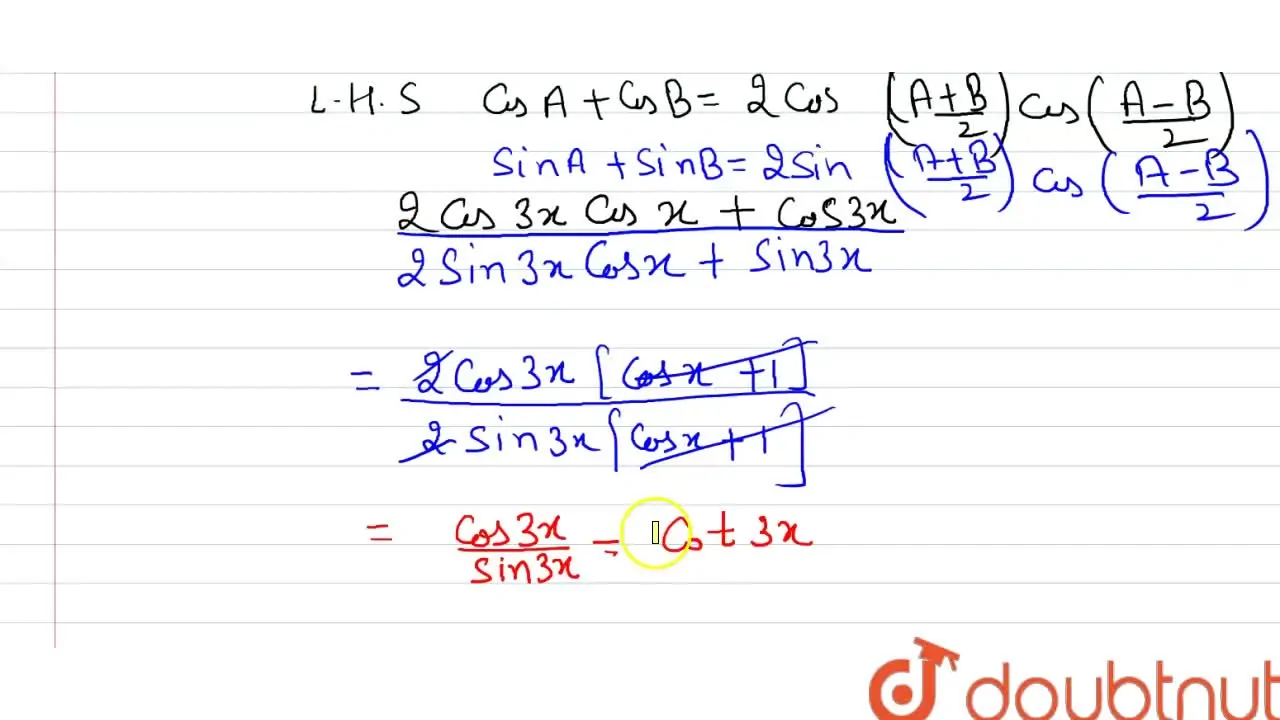 L.H.S Cos A + Cos B = 2 Cos (A+B/2) Cos (A-B/2)
Sin A + Sin B = 2 Sin (A+B/2) Cos (A-B/2)
2 Cos 3x Cos x + Cos 3x
2 Sin 3x Cos x + Sin 3x
= 2 Cos 3x [Cos x + 1]
2 Sin 3x [Cos x + 1]
= Cos 3x / Sin 3x = Cot 3x
doubtnut